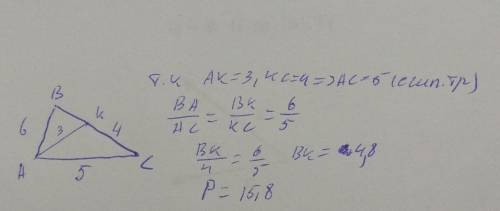 т.к AK=3, KC=4=>AC=5 (егип.тр)
BA/AC = BK/KC = 6/5
BK/4 = 6/5 BK= 4,8
P=15,8
B
K
6
3
4
A
5
C